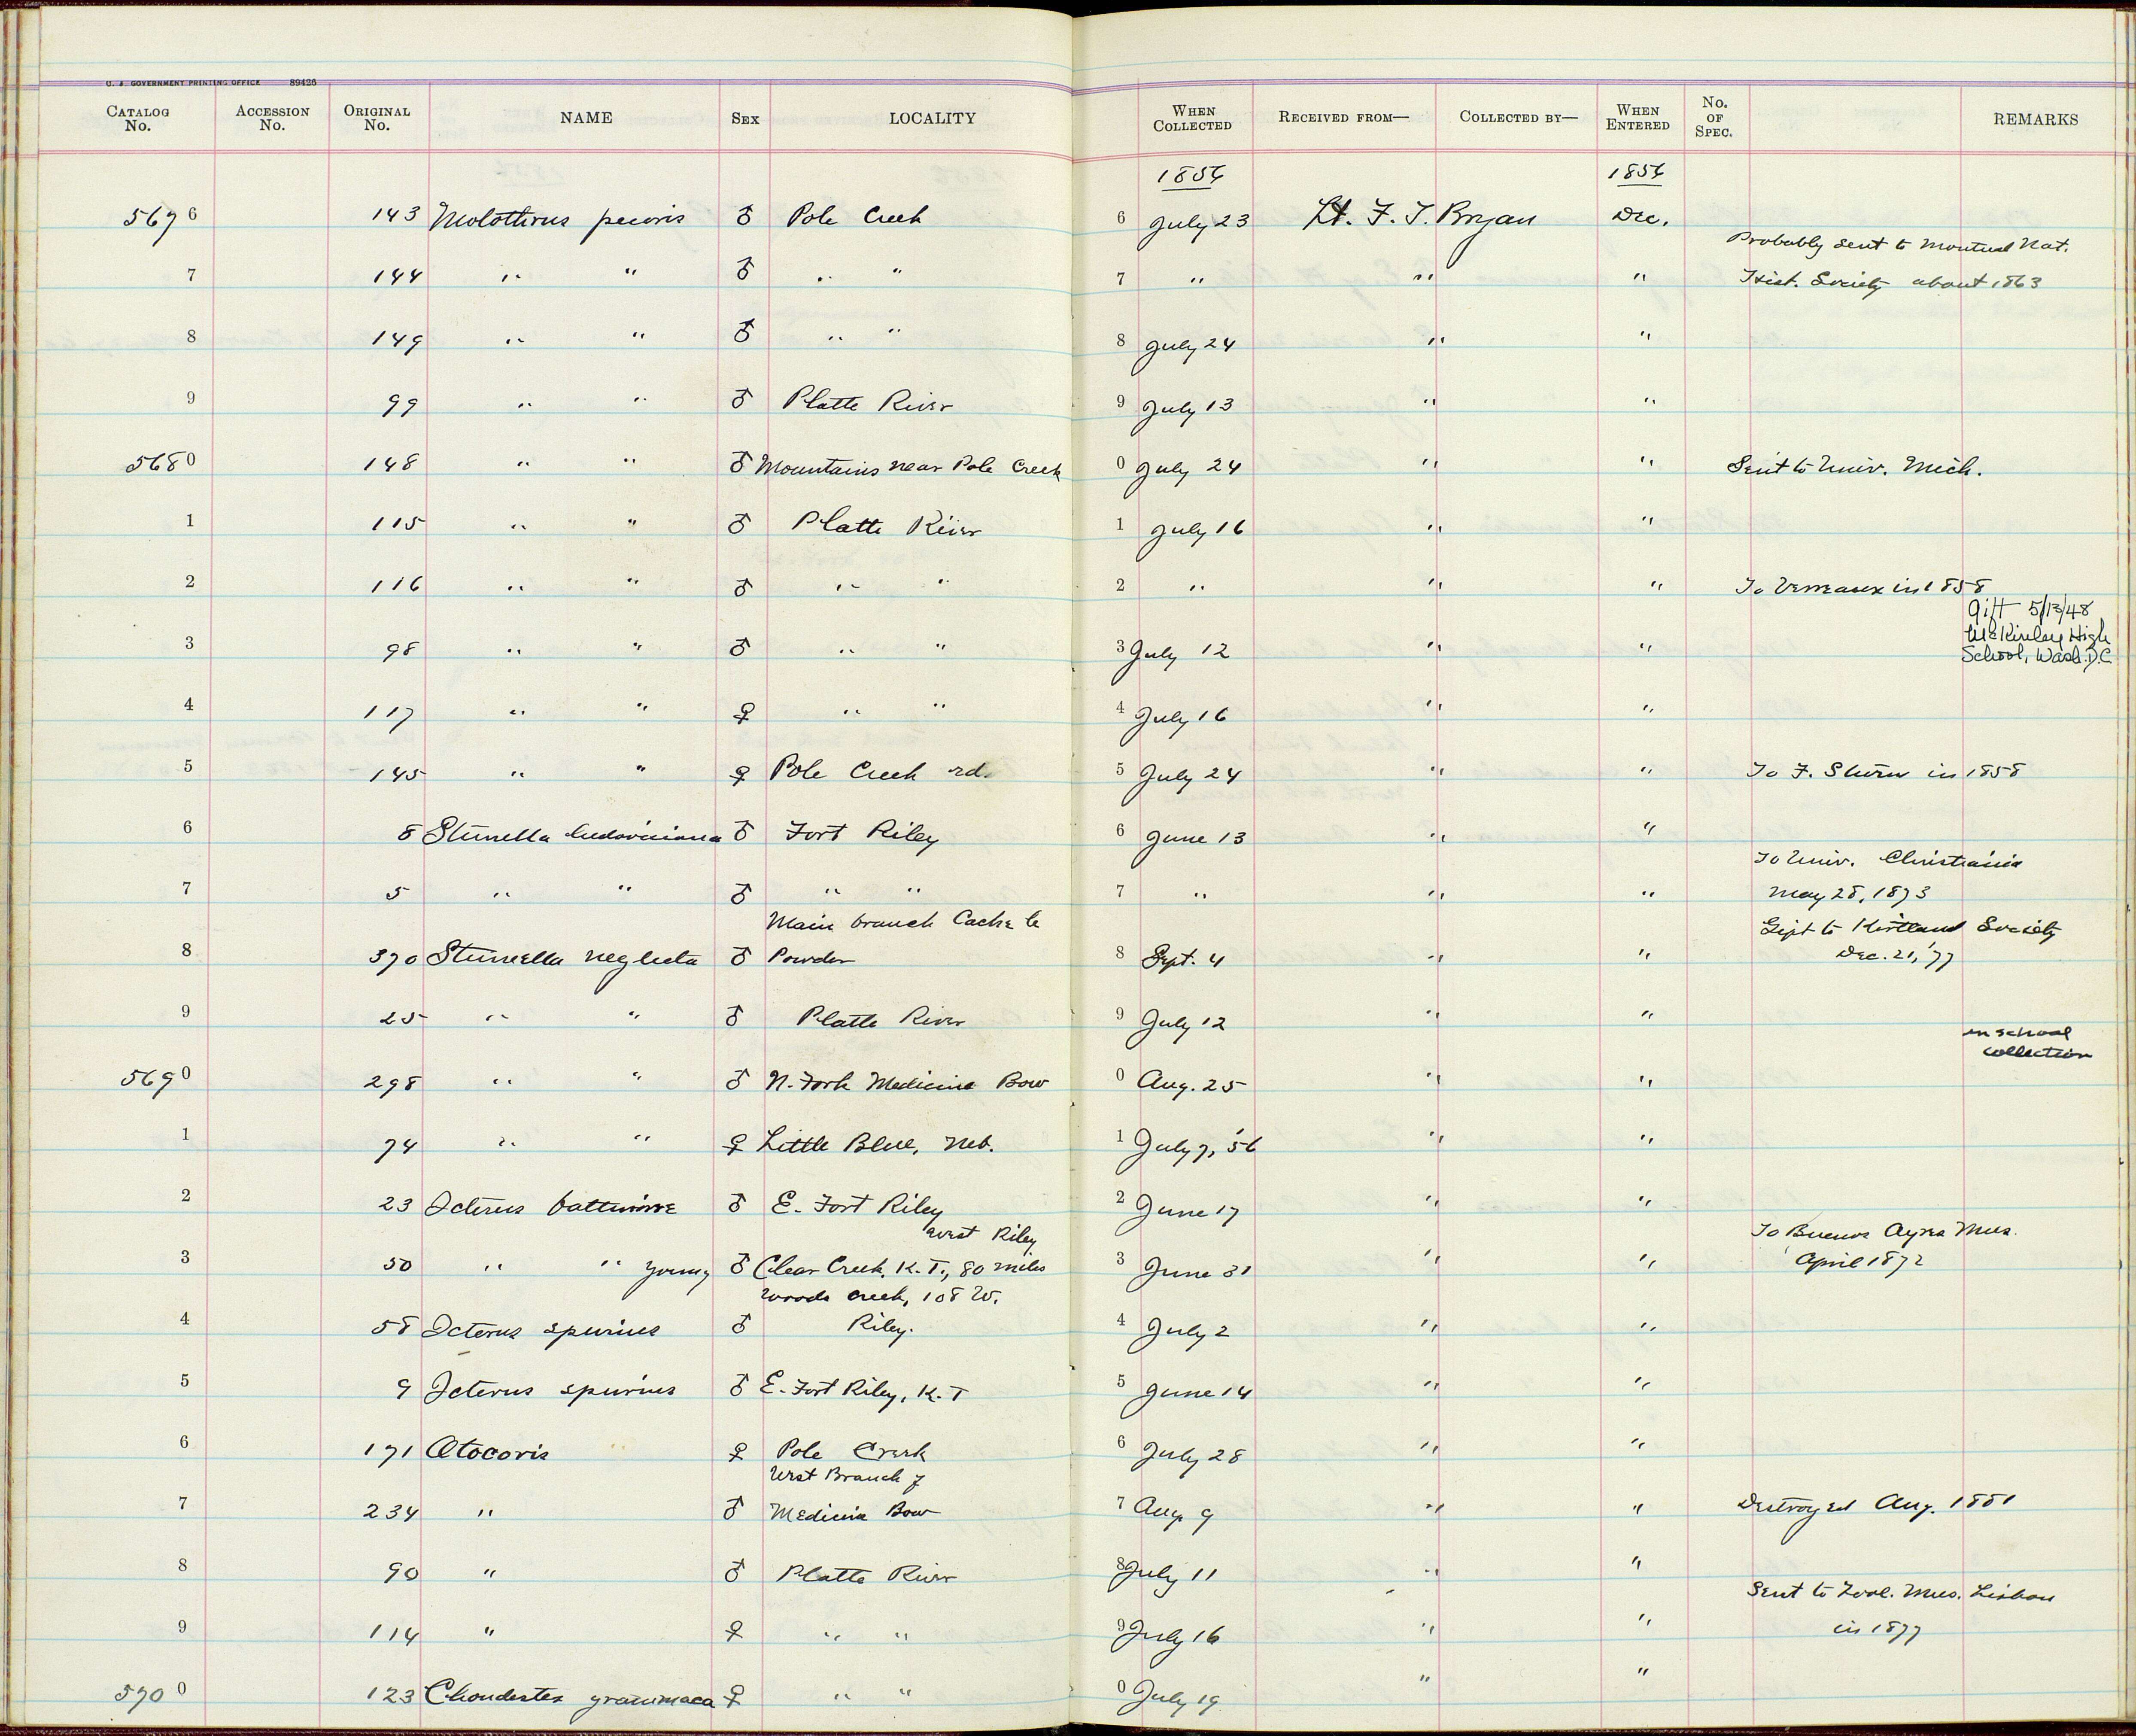 U. S. GOVERNMENT PRINTING OFFICE 89426
CATALOG No. ACCESSION No. ORIGINAL No. NAME SEX LOCALITY WHEN COLLECTED RECEIVED FROM— COLLECTED BY— WHEN ENTERED No. OF SPEC. REMARKS
1856 1856
5676 143 Molothrus pecoris ♂ Pole Creek 6 July 23 Lt. F. T. Bryan Dec.
Probably sent to Montreal Nat.
7 144 " " ♂ " " 7 " " " Hist. Society about 1863
8 149 " " ♂ " " 8 July 24 " "
9 99 " " ♂ Platte River 9 July 13 " "
5680 148 " " ♂ Mountains near Pole Creek 0 July 24 " " Sent to Univ. Mich.
1 115 " " ♂ Platte River 1 July 16 " "
2 116 " " ♂ " " 2 " " " To Verreaux in 1858
Gift 5/13/48
McKinley High
3 98 " " ♂ " " 3 July 12 " " School, Wash. D.C.
4 117 " " ♀ " " 4 July 16 " "
5 145 " " ♀ Pole Creek rd. 5 July 24 " " To F. Sturm in 1858
6 8 Sturnella ludoviciana ♂ Fort Riley 6 June 13 " "
To Univ. Christiania
7 5 " " ♂ " " 7 " " " May 28, 1873
Main branch Cache le Gift to Kirtland Society
8 370 Sturnella neglecta ♂ Powder 8 Sept. 4 " " Dec. 21, '77
9 25 " " ♂ Platte River 9 July 12 " "
in school
collection
5690 298 " " ♂ N. Fork Medicine Bow 0 Aug. 25 " "
1 74 " " ♀ Little Blue, Neb. 1 July 7, '56 " "
2 23 Icterus baltimore ♂ E. Fort Riley 2 June 17 " "
West Riley To Buenos Ayres Mus.
3 50 " " young ♂ Clear Creek, K. T., 80 miles 3 June 31 " " April 1872
Woods Creek, 108 W.
4 58 Icterus spurius ♂ Riley. 4 July 2 " "
5 9 Icterus spurius ♂ E. Fort Riley, K. T 5 June 14 " "
6 171 Otocoris ♀ Pole Creek 6 July 28 " "
West Branch of
7 234 " ♂ Medicine Bow 7 Aug. 9 " " Destroyed Aug. 1881
8 90 " ♂ Platte River 8 July 11 " "
Sent to Zool. Mus. Lisbon
9 114 " ♀ " " 9 July 16 " " in 1877
5700 123 Chondestes grammaca ♀ " " 0 July 19 " "